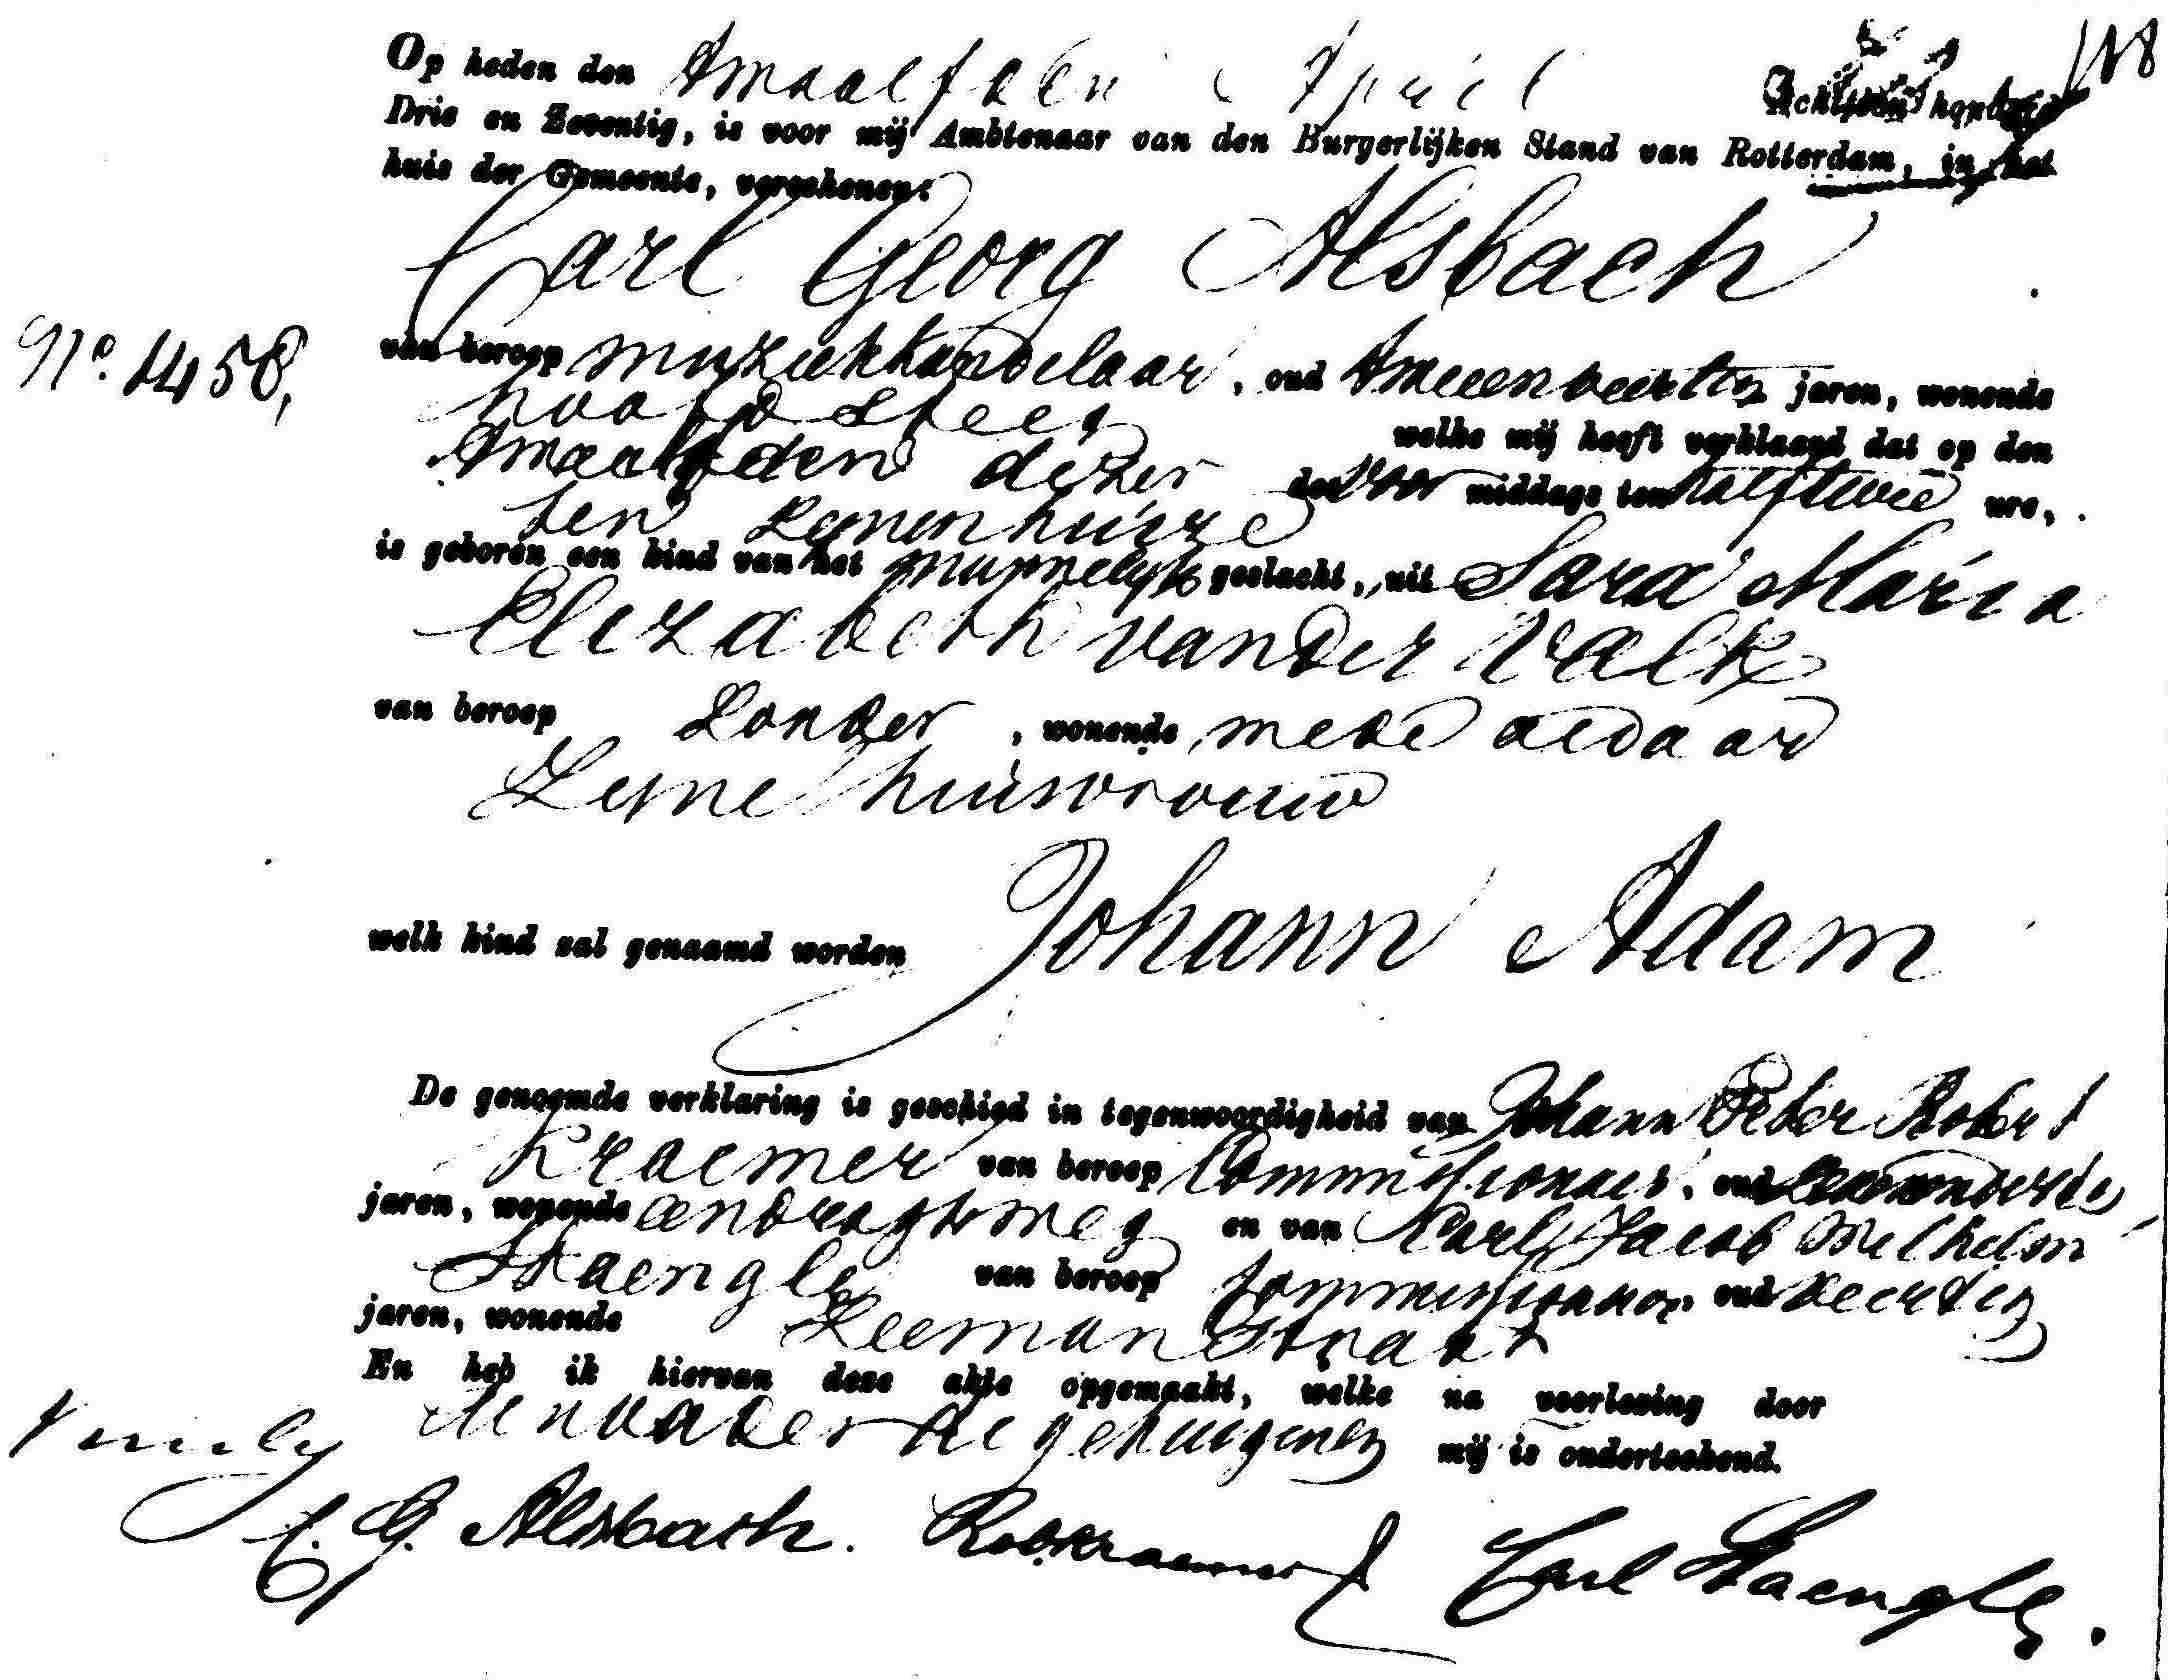 148
Op heden den twaalfden April Achttien honderd
Drie en Zeventig, is voor mij Ambtenaar van den Burgerlijken Stand van Rotterdam, in het
huis der Gemeente, verschenen:
Carl Georg Alsbach
No. 1458,
van beroep muziekhandelaar, oud tweeenveertig jaren, wonende
hoofdsteeg welke mij heeft verklaard dat op den
twaalfden dezer des voor middags ten half twee ure,
ten zynen huize
is geboren een kind van het mannelyk geslacht, uit Sara Maria
Elizabeth van der Valk
van beroep zonder, wonende mede aldaar
zyne huisvrouw
welk kind zal genaamd worden Johann Adam
De genoemde verklaring is geschied in tegenwoordigheid van Johann Peter Robert
Kraemer van beroep Commissionair, oud
jaren, wonende eendragtsweg en van Carl Jacob Wilhelm
Staengle van beroep commissionair oud veertig
jaren, wonende Zeemanstraat
En heb ik hiervan deze akte opgemaakt, welke na voorlezing door
den vader de getuigen en mij is onderteekend.
C. G. Alsbach. Rob Kraemer Carl Staengle.